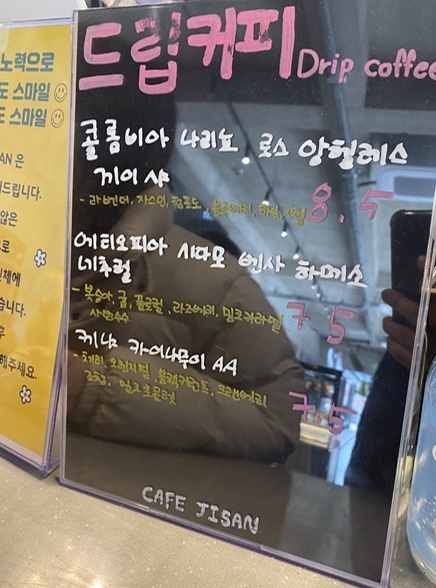 노력으로
도 스마일
도 스마일
AN 은
드립니다.
않은
로
인체에
습니다.
후
해주세요.
드립커피 Drip coffee
콜롬비아 나리뇨 로스 앙헬레스
게이샤
8.5
- 라벤더, 자스민, 청포도, 블루베리,
에티오피아 시다모 벤사 하메소
네추럴
7.5
- 복숭아, 귤, 라즈베리, 밀크카라멜
사탕수수
케냐 카이나무이 AA
7.5
- 체리, 오렌지필, 블랙커런트, 크랜베리
밀크초콜릿
CAFE JISAN